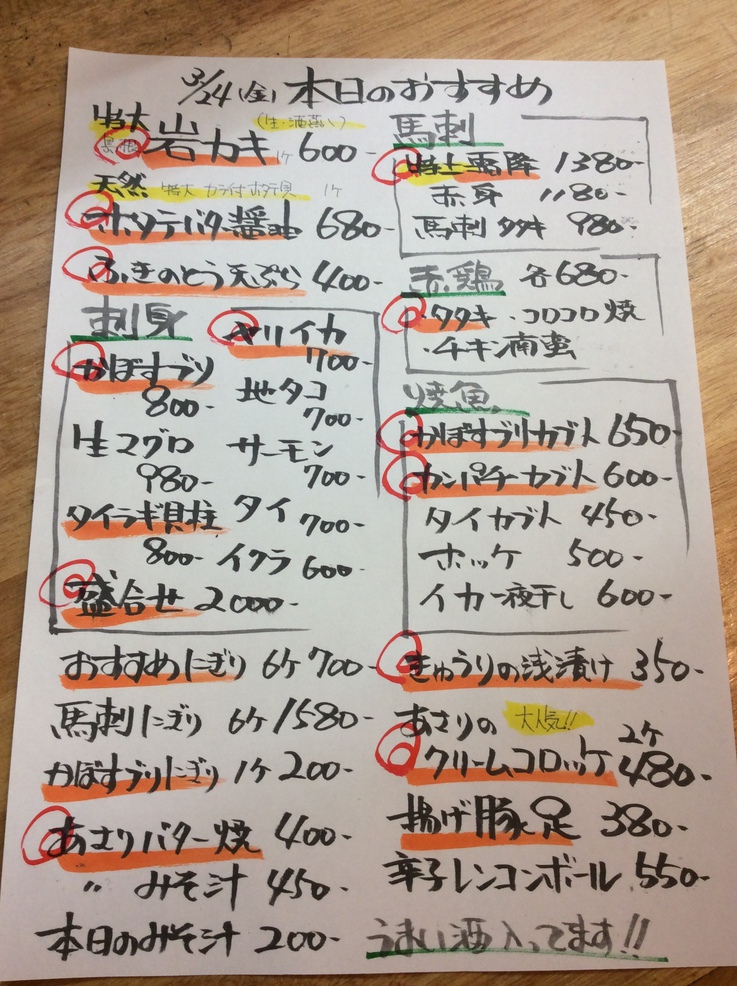 3/24(金)本日のおすすめ
特大 (生・酒蒸し)
島根 岩カキ 1ケ 600-
天然 特大 カラ付ホタテ貝 1ケ
ホタテバター醤油 680-
ふきのとう天ぷら 400-
刺身
かぼすブリ
800-
生マグロ
980-
タイラギ貝柱
800-
盛合せ 2000-
ヤリイカ
700-
地タコ
700-
サーモン
700-
タイ 700-
イクラ 600-
おすすめにぎり 6ケ 700-
馬刺にぎり 6ケ 1580-
かぼすぶりにぎり 1ケ 200-
あさりバター焼 400-
〃 みそ汁 450-
本日のみそ汁 200-
馬刺
特上霜降 1380-
赤身 1180-
馬刺タタキ 980-
赤鶏 各680-
・タタキ ・コロコロ焼
・チキン南蛮
焼魚
かぼすブリカブト 650-
カンパチーカブト 600-
タイカブト 450-
ホッケ 500-
イカ一夜干し 600-
きゅうりの浅漬け 350-
あさりの 大人気!!
クリームコロッケ 2ケ 480-
揚げ豚足 380-
辛子レンコンボール 550-
うまい酒入ってます!!